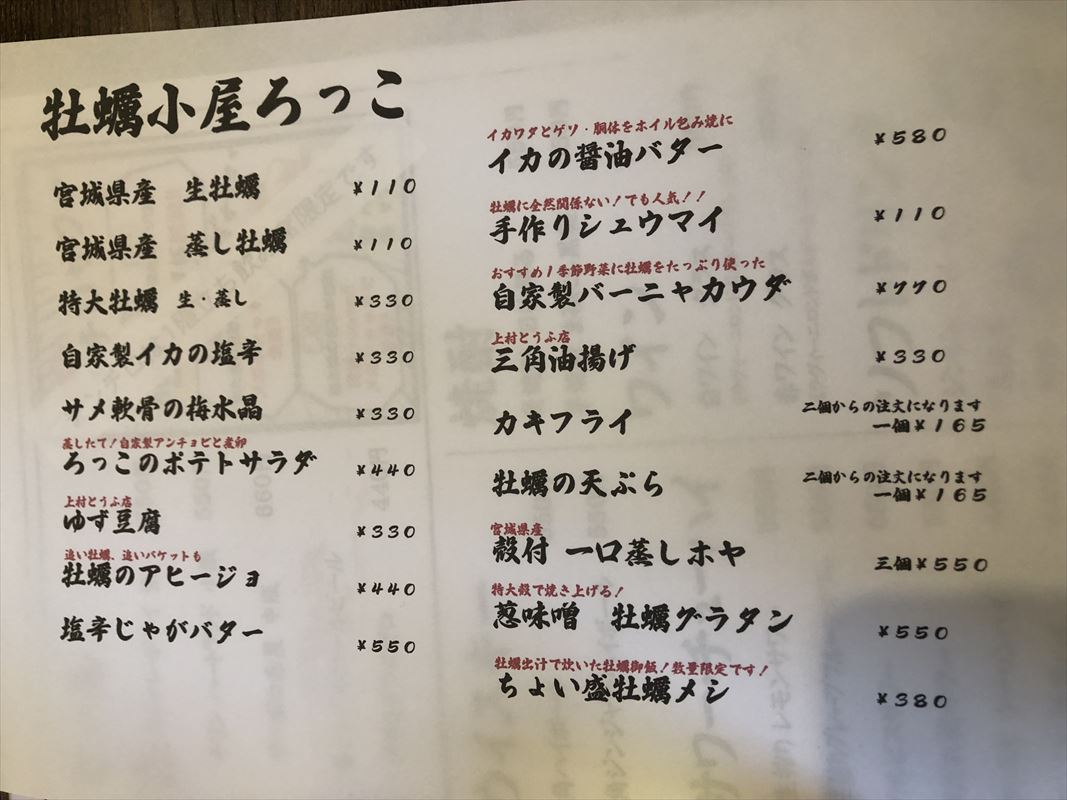 牡蠣小屋ろっこ
宮城県産　生牡蠣　¥110
宮城県産　蒸し牡蠣　¥110
特大牡蠣　生・蒸し　¥330
自家製イカの塩辛　¥330
サメ軟骨の梅水晶　¥330
蒸したて！自家製アンチョビと煮卵
ろっこのポテトサラダ　¥440
上村とうふ店
ゆず豆腐　¥330
追い牡蠣、追いバケットも
牡蠣のアヒージョ　¥440
塩辛じゃがバター　¥550
イカワタとゲソ・胴体をホイル包み焼に
イカの醤油バター　¥580
牡蠣に全然関係ない！でも人気！！
手作りシュウマイ　¥110
おすすめ！季節野菜に牡蠣をたっぷり使った
自家製バーニャカウダ　¥770
上村とうふ店
三角油揚げ　¥330
二個からの注文になります
カキフライ　一個¥165
二個からの注文になります
牡蠣の天ぷら　一個¥165
宮城県産
殻付 一口蒸しホヤ　三個¥550
特大殻で焼き上げる！
葱味噌　牡蠣グラタン　¥550
牡蠣出汁で炊いた牡蠣御飯！数量限定です！
ちょい盛牡蠣メシ　¥380